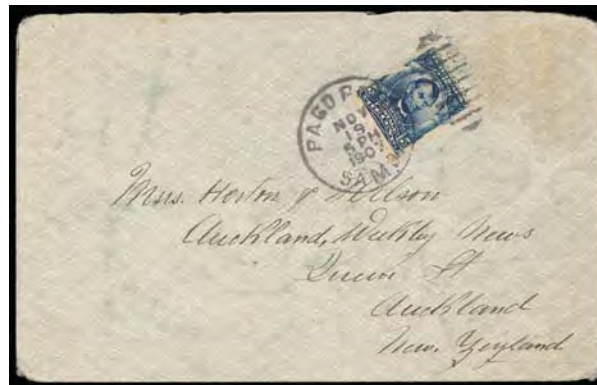 PAGO P
NOV
19
5 PM
190
SAM
Mrss. Horton &
Auckland, Weekly News
Queen St
Auckland
New. Zeyland